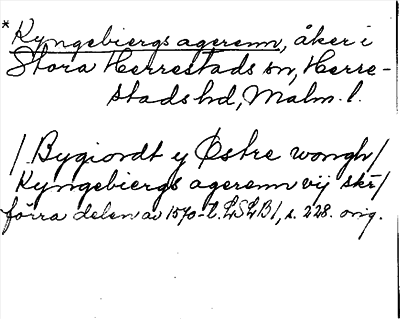 *Kyngebiergs agerenn, åker i
Stora Herrestads sn, Herre-
stads hd, Malm. l.
/ Bygiordt y Østre wongh /
Kyngebiergs agerenn vij skr̄ /
förra delen av 1570-t. LSLB 1, s. 228. orig.